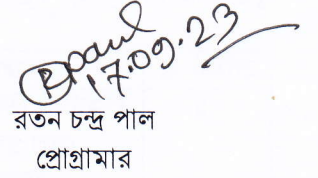 17.09.23
রতন চন্দ্র পাল
প্রোগ্রামার